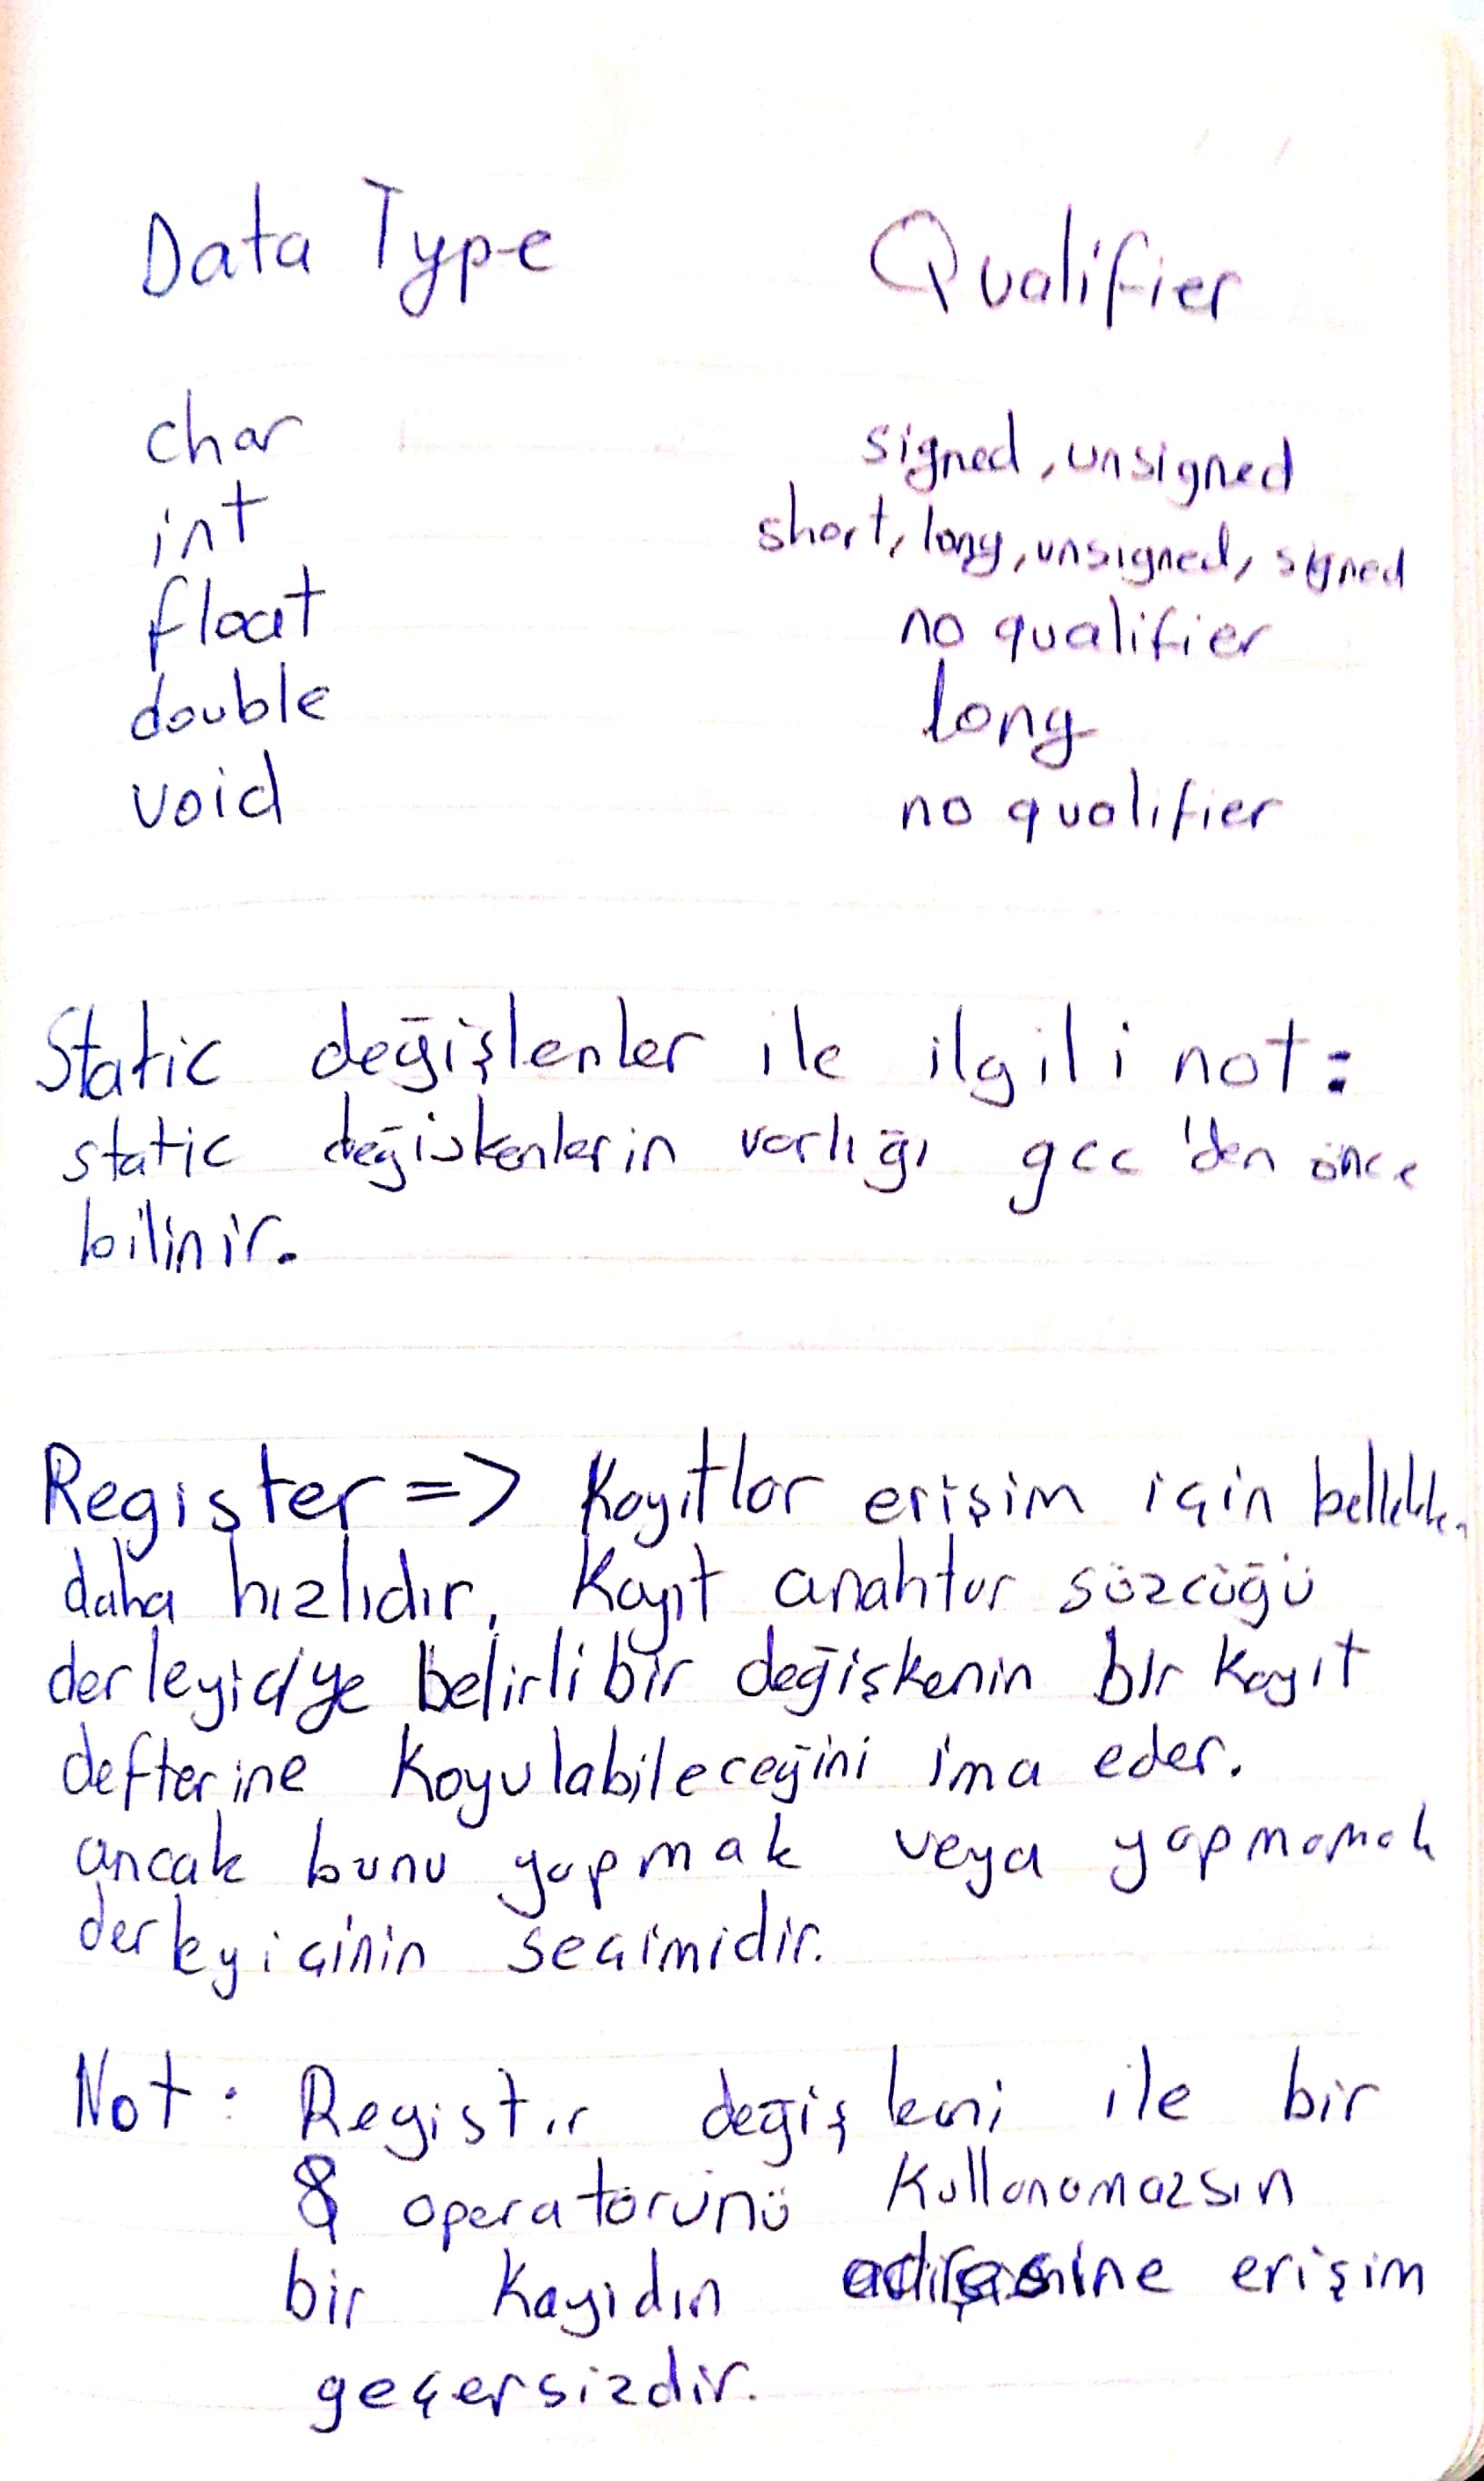 Data Type Qualifier
char signed, unsigned
int short, long, unsigned, signed
float no qualifier
double long
void no qualifier
Static değişkenler ile ilgili not:
static değişkenlerin varlığı gcc'den önce
bilinir.
Register => Kayıtlar erişim için bellekten
daha hızlıdır. Kayıt anahtar sözcüğü
derleyiciye belirli bir değişkenin bir kayıt
defterine koyulabileceğini ima eder.
ancak bunu yapmak veya yapmamak
derleyicinin seçimidir.
Not: Register değişkeni ile bir
& operatörünü kullanamazsın
bir kayidın adresine erişim
geçersizdir.